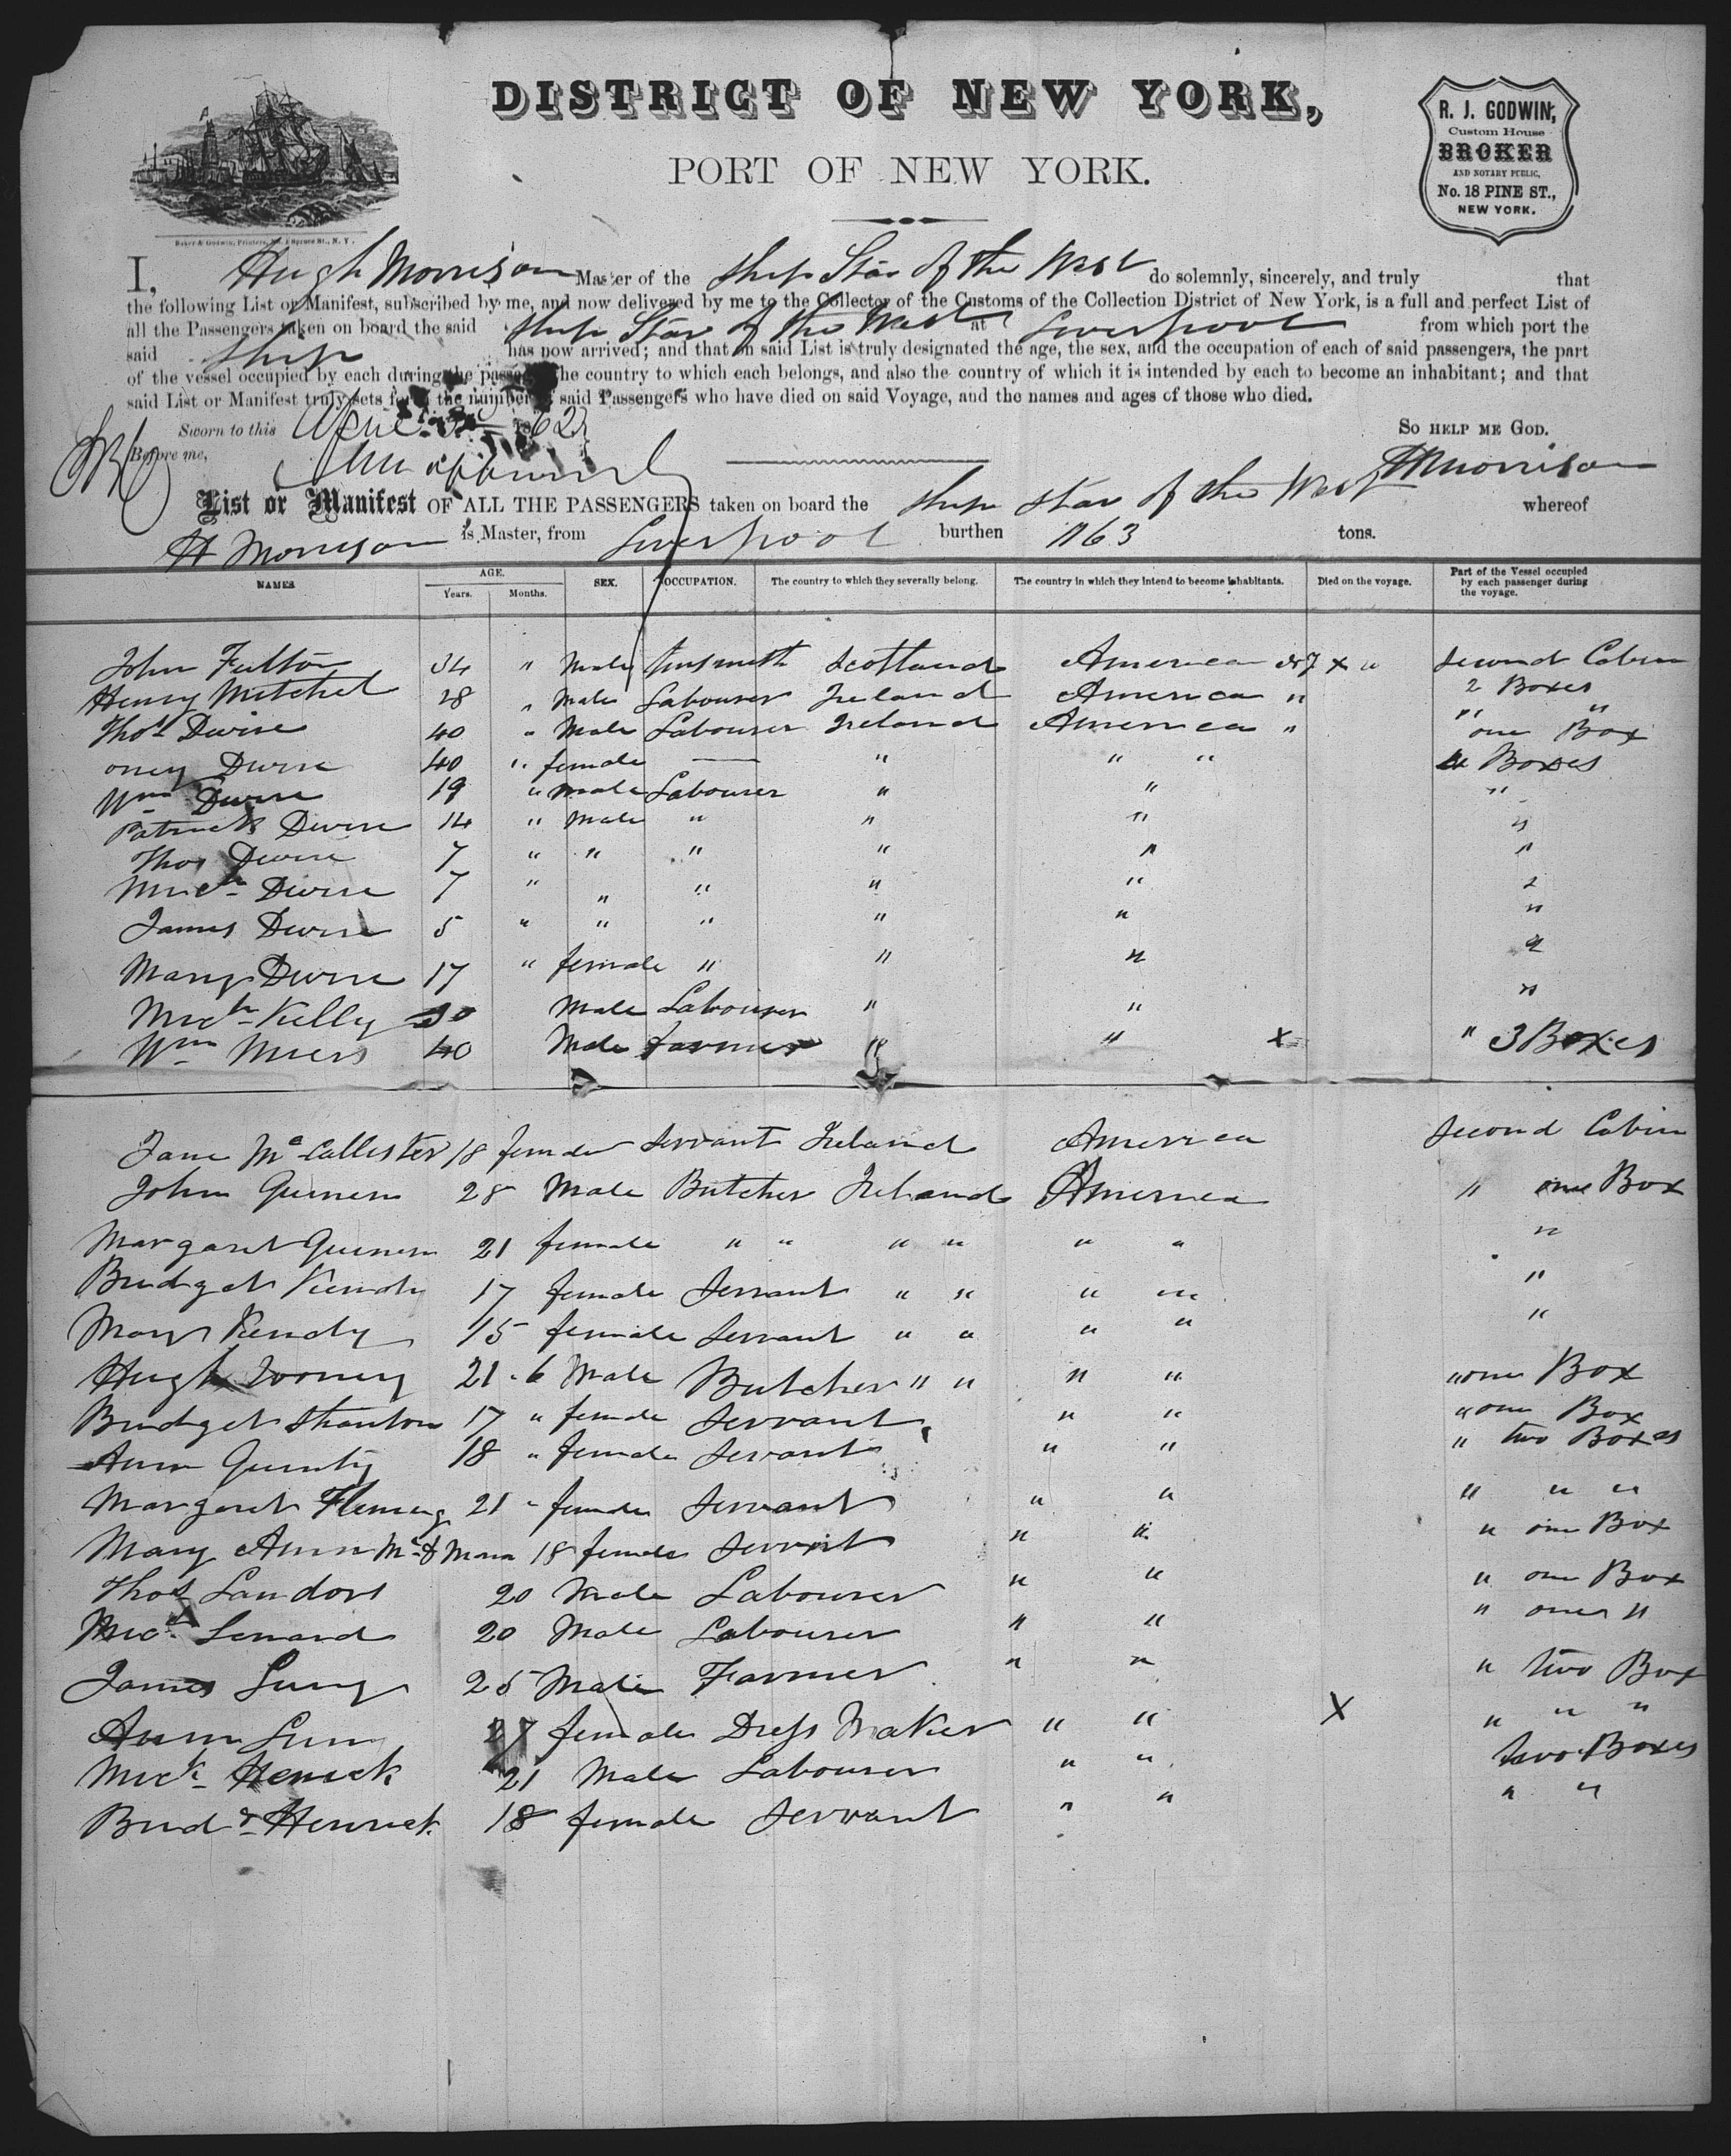 DISTRICT OF NEW YORK,
PORT OF NEW YORK.
R. J. GODWIN,
Custom House
BROKER
AND NOTARY PUBLIC,
No. 18 PINE ST.,
NEW YORK.
Baker & Godwin, Printers, Spruce St., N. Y.
I, Hugh Morrison Master of the Ship Star of the West do solemnly, sincerely, and truly that
the following List or Manifest, subscribed by me, and now delivered by me to the Collector of the Customs of the Collection District of New York, is a full and perfect List of
all the Passengers taken on board the said Ship Star of the West at Liverpool from which port the
said Ship has now arrived; and that on said List is truly designated the age, the sex, and the occupation of each of said passengers, the part
of the vessel occupied by each during the passage, the country to which each belongs, and also the country of which it is intended by each to become an inhabitant; and that
said List or Manifest truly sets forth the number of said Passengers who have died on said Voyage, and the names and ages of those who died.
Sworn to this April 3 1862 So HELP ME GOD.
Before me, H Morrison
List or Manifest OF ALL THE PASSENGERS taken on board the Ship Star of the West whereof
H Morrison is Master, from Liverpool burthen 1163 tons.
NAMES AGE. Years. Months. SEX. OCCUPATION. The country to which they severally belong. The country in which they intend to become inhabitants. Died on the voyage. Part of the Vessel occupied by each passenger during the voyage.
John Fulton 34 " Male Tinsmith Scotland America x " Second Cabin
Henry Mitchel 28 " Male Labourer Ireland America " 2 Boxes
Thos Dwire 40 " Male Labourer Ireland America " " " one Box
Dwire 40 " female — " " " Boxes
Wm Dwire 19 " Male Labourer " " "
Patrick Dwire 14 " Male " " " "
Thos Dwire 7 " " " " " "
Mich Dwire 7 " " " " " "
James Dwire 5 " " " " " "
Mary Dwire 17 " female " " " "
Mich Kelly 30 Male Labourer " " "
Wm Miers 40 Male farmer " " x " 3 Boxes
Jane McCallester 18 female Servant Ireland America Second Cabin
John Guinen 28 Male Butcher Ireland America " one Box
Margaret Guinen 21 female " " " " " " "
Bridget Kendy 17 female Servant " " " " "
Mary Kendy 15 female Servant " " " " "
Hugh 21 " 6 Male Butcher " " " " " one Box
Bridget Stanton 17 " female Servant " " " one Box
Ann 18 " female Servant " " " two Boxes
Margaret Fleming 21 " female Servant " " " " "
Mary Ann 18 female Servant " " " one Box
Thos Landors 20 Male Labourer " " " one Box
Mich Lenard 20 Male Labourer " " " one "
James Lung 25 Male Farmer " " " two Box
Ann 27 female Dress Maker " " X " " "
Mich Henrick 21 Male Labourer " " two Boxes
Brid Henrick 18 female Servant " " " "